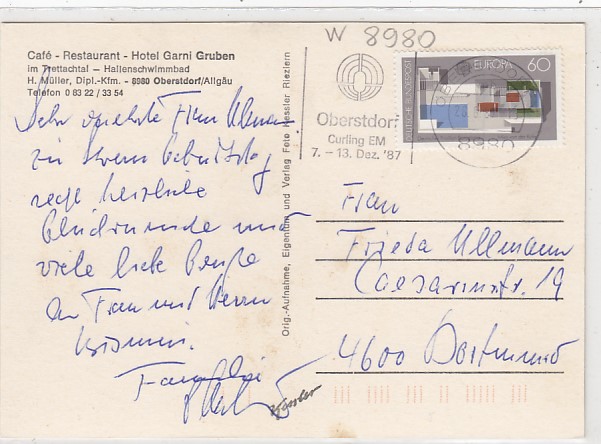 W 8980
Café - Restaurant - Hotel Garni Gruben
im Trettachtal — Hallenschwimmbad
H. Müller, Dipl.-Kfm. - 8980 Oberstdorf/Allgäu
Telefon 0 83 22 / 33 54
Sehr geehrte Frau Ullmann
zu Ihrem Geburtstag
recht herzliche
Glückwünsche und
viele liebe Grüße
an Frau und Herrn
Familie
Kessler
Orig.-Aufnahme, Eigentum und Verlag Foto Kessler Riezlern
Oberstdorf
Curling EM
7. - 13. Dez. '87
DEUTSCHE BUNDESPOST
EUROPA 60
8980
Frau
Frieda Ullmann
Caesarinstr. 19
4600 Dortmund